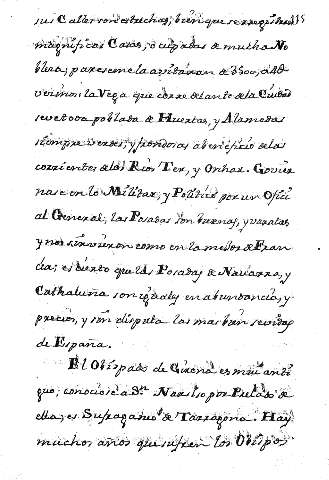 sus Calles son estechas, bien que se registran
magnificas Casas, ocupadas de mucha No
bleza; pareseme la avitaran de 3500, a 40
vesinos; la Vega que corre delante de la Ciudad
se ve toda poblada de Huertas, y Alamedas
siempre verdes, y frondosas a beneficio de las
corrientes de los Rios Ter, y Oñar. Govier
nase en lo Militar, y Politico por un Ofici
al General; las Posadas son buenas, y varatas
y nos sirvieron como en la mejor de Fran
cia; es cierto que las Posadas de Navarra, y
Cathaluña son iguales en abundancia, y
precio, y sin disputa las mas bien servidas
de España.
El Obispado de Girona es mui anti
guo; conociose a Sn. Narsiso por Prelado de
ella; es Sufraganeo de Tarragona. Hay
muchos años que sufren los Obispos